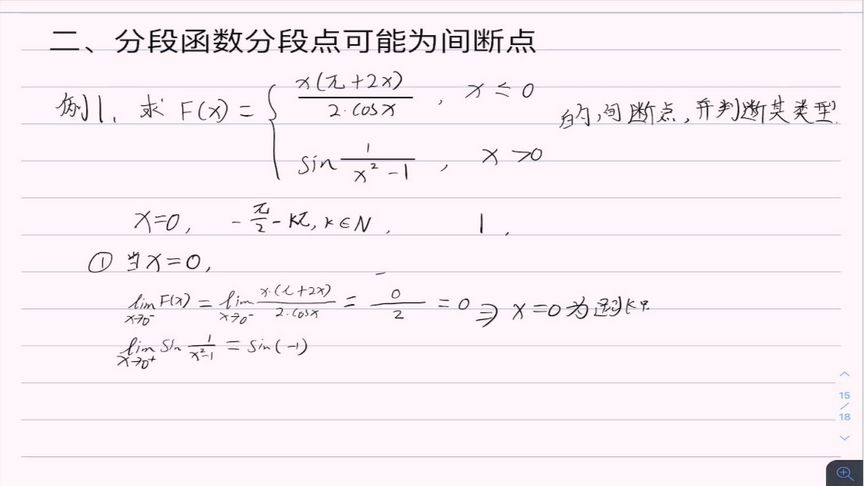 二、分段函数分段点可能为间断点
例1. 求 F(x) = { x(π+2x) / 2·cosx , x ≤ 0 的间断点,并判断其类型.
sin 1/(x²-1) , x >0
x=0, -π/2 - kπ, k∈N, 1,
① 当 x=0,
lim x→0⁻ F(x) = lim x→0⁻ x·(π+2x) / 2·cosx = 0/2 = 0 ⇒ x=0 为跳跃点
lim x→0⁺ sin 1/(x²-1) = sin(-1)
15
/
18